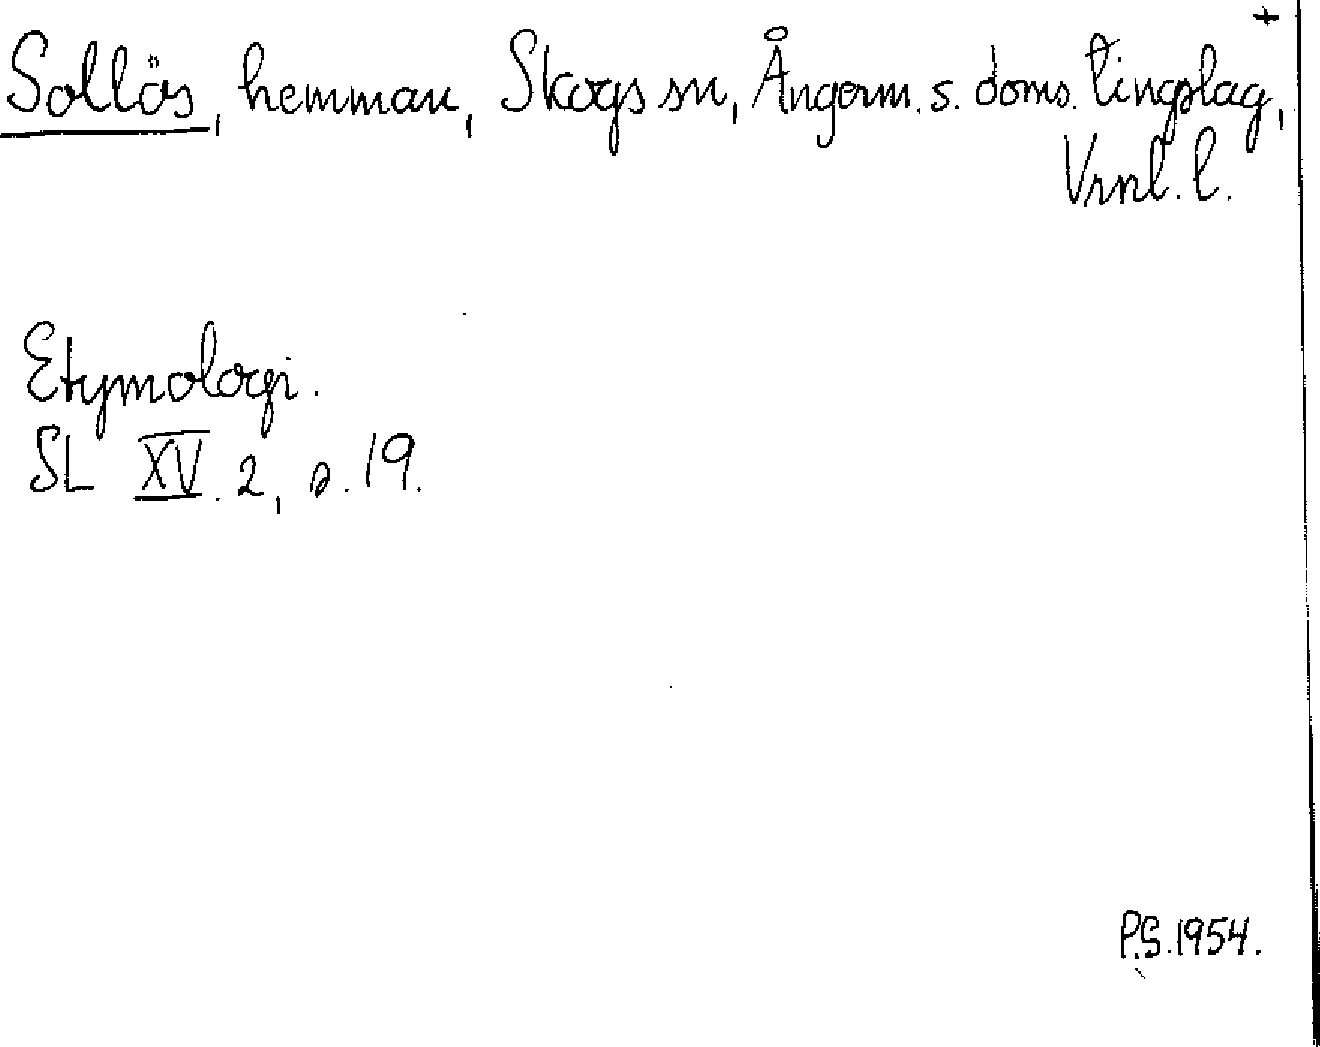 +
Sollös, hemman, Skogs sn, Ångerm. s. doms. tingslag,
Vrnl. l.
Etymologi.
SL XV. 2, s. 19.
P.S. 1954.